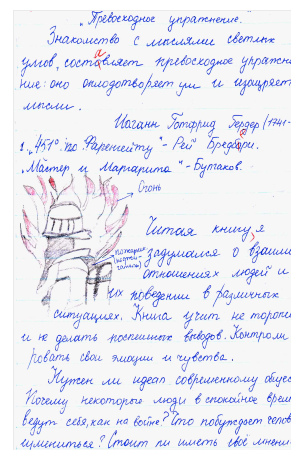 „Превосходное упражнение."
Знакомство с мыслями светлых
умов, составляет превосходное упражн
ние: оно оплодотворяет ум и изощряет
мысли.
Иоганн Готфрид Гердер (1741-
1. „451° по Фаренгейту" - Рей Бредбери.
„Мастер и Маргарита" - Булгаков.
Огонь
Читая книгу, я
пожарник
задумался о взаимо
отношениях людей и
их поведении в различных
ситуациях. Книга учит не торопи
и не делать поспешных выводов. Контроли
ровать свои эмоции и чувства.
Нужен ли идеал современному общес
Почему некоторые люди в спокойное врем
ведут себя, как на войне? Что побуждает челов
измениться? Стоит ли иметь своё мнени